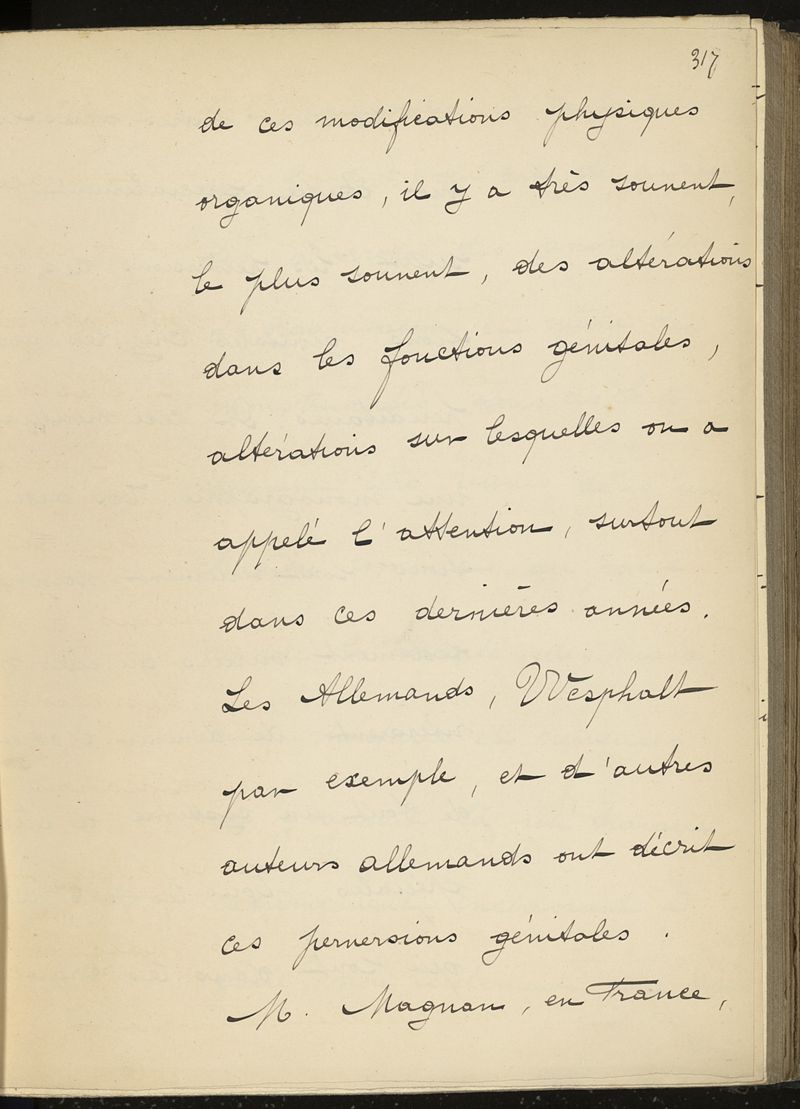 317
de ces modifications physiques
organiques, il y a très souvent,
le plus souvent, des altérations
dans les fonctions génitales,
altérations sur lesquelles on a
appelé l'attention, surtout
dans ces dernières années.
Les Allemands, Wesphalt
par exemple, et d'autres
auteurs allemands ont décrit
ces perversions génitales.
M. Magnan, en France,